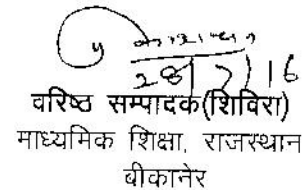 28/7/16
वरिष्ठ सम्पादक(शिविरा)
माध्यमिक शिक्षा, राजस्थान
बीकानेर